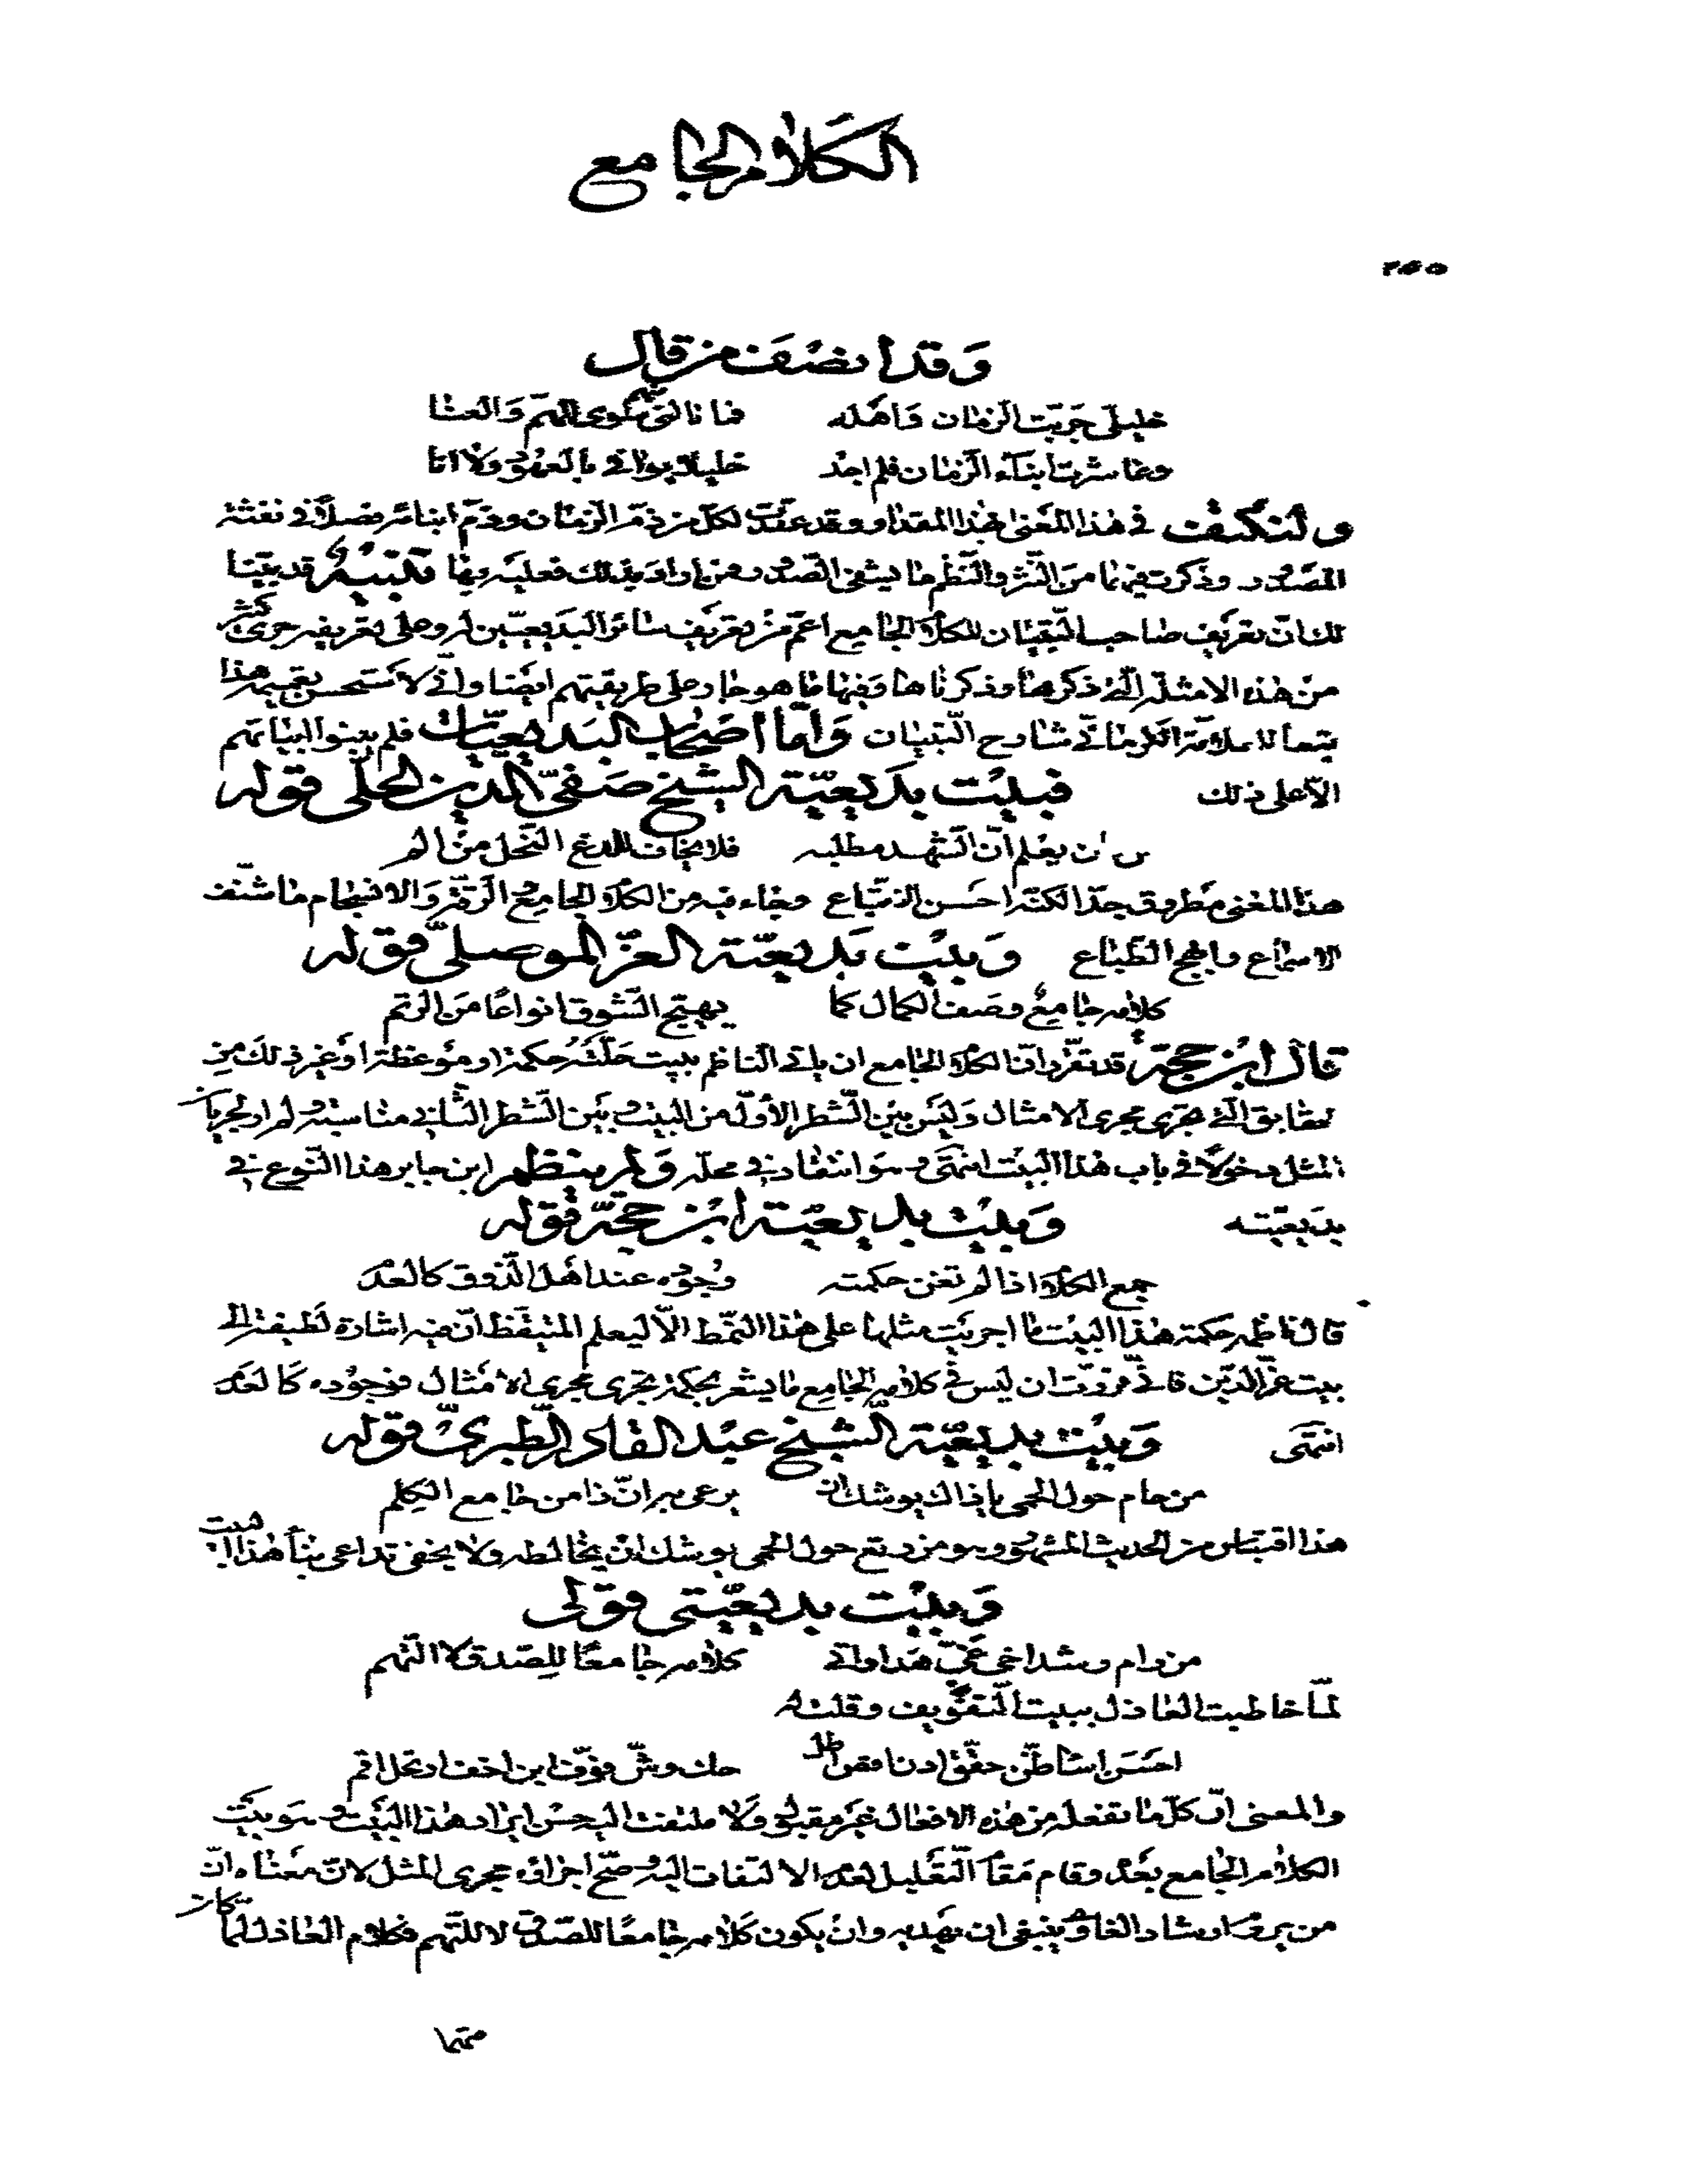 الكلام الجامع
٢٥٥
وقد انصف من قال
خليلي جربت الزمان واهله فما نالني منهم سوى الهم والعنا
وعاشرت ابناء الزمان فلم اجد خليلا يوافي بالعهود ولا انا
ولنكتف في هذا المعنى بهذا المقدار وقد عقدت لكل من ذم الزمان وذم ابنائه فصلا في نفثة
المصدور وذكرت فيهما من النثر والنظم ما يشفي الصدور ومن اراد ذلك فعليه بها تنبيه قد بينا
لك ان تعريف صاحب التبيان للكلام الجامع اعم من تعريف سائر البديعيين له وعلى تعريفه جرى كثير
من هذه الامثلة التي ذكرها وذكرناها وفيها ما هو جار على طريقتهم ايضا واني لاستحسن تعميمه هذا
تبعا للعلامة الكرماني شارح التبيان واما اصحاب البديعيات فلم يبنوا ابياتهم
الا على ذلك فبيت بديعية الشيخ صفي الدين الحلي قوله
من كان يعلم ان الشهد مطلبه فلا يخاف للدغ النحل من الم
هذا المعنى مطروق جدا لكنه احسن الاتباع وجاء فيه من الكلام الجامع والرقة والانسجام ما شنف
الاسماع وابهج الطباع وبيت بديعية العز الموصلي قوله
كلامه جامع وصف الكمال كما يهيج الشوق انواعا من الرتم
قال ابن حجة قد تقرر ان الكلام الجامع ان ياتي الناظم ببيت جملته حكمة او موعظة او غير ذلك من
الحقايق التي تجري مجرى الامثال وليس بين الشطر الاول من البيت وبين الشطر الثاني مناسبة ولم ار لجريان
المثل دخولا في باب هذا البيت انتهى وهو انتقاد في محله ولم ينظم ابن جابر هذا النوع في
بديعيته وبيت بديعية ابن حجة قوله
جمع الكلام اذا لم تغن حكمته وجوده عند اهل الذوق كالعدم
قال ناظمه حكمة هذا البيت ما اجريت مثلها على هذا النمط الا ليعلم المتيقظ ان فيه اشارة لطيفة الى
بيت عز الدين فاني قررت ان ليس في كلامه الجامع ما يشعر بحكمة تجري مجرى الامثال فوجوده كالعدم
انتهى وبيت بديعية الشيخ عبد القادر الطبري قوله
من حام حول الحمى يا ذاك يوشك ان يرعى به ان ذا من جامع الكلم
هذا اقتباس من الحديث المشهور وهو من رتع حول الحمى يوشك ان يخالطه ولا يخفى تداعي بناء هذا البيت
وبيت بديعيتي قولي
من رام رشد اخي غي هدا واتى كلامه جامعا للصدق لا التهم
لما خاطبت العاذل ببيت التفويف وقلت له
احسن اسا ظن حقق ادن اقص اطل حك وش فوف ابن اخف ارتحل اقم
والمعنى ان كل ما تفعله من هذه الافعال غير مقبول ولا ملتفت اليه حسن ايراد هذا البيت وهو بيت
الكلام الجامع بعده وقام مقام التعليل لعدم الالتفات اليه وصح اجراؤه مجرى المثل لان معناه ان
من يروم ارشاد الغاوي ينبغي ان يهديه وان يكون كلامه جامعا للصدق لا للتهم فكلام العاذل لما كان
متهما